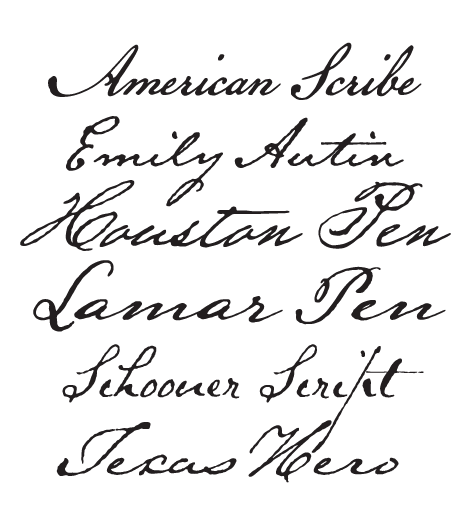 American Scribe
Emily Autin
Houston Pen
Lamar Pen
Schooner Script
Texas Hero